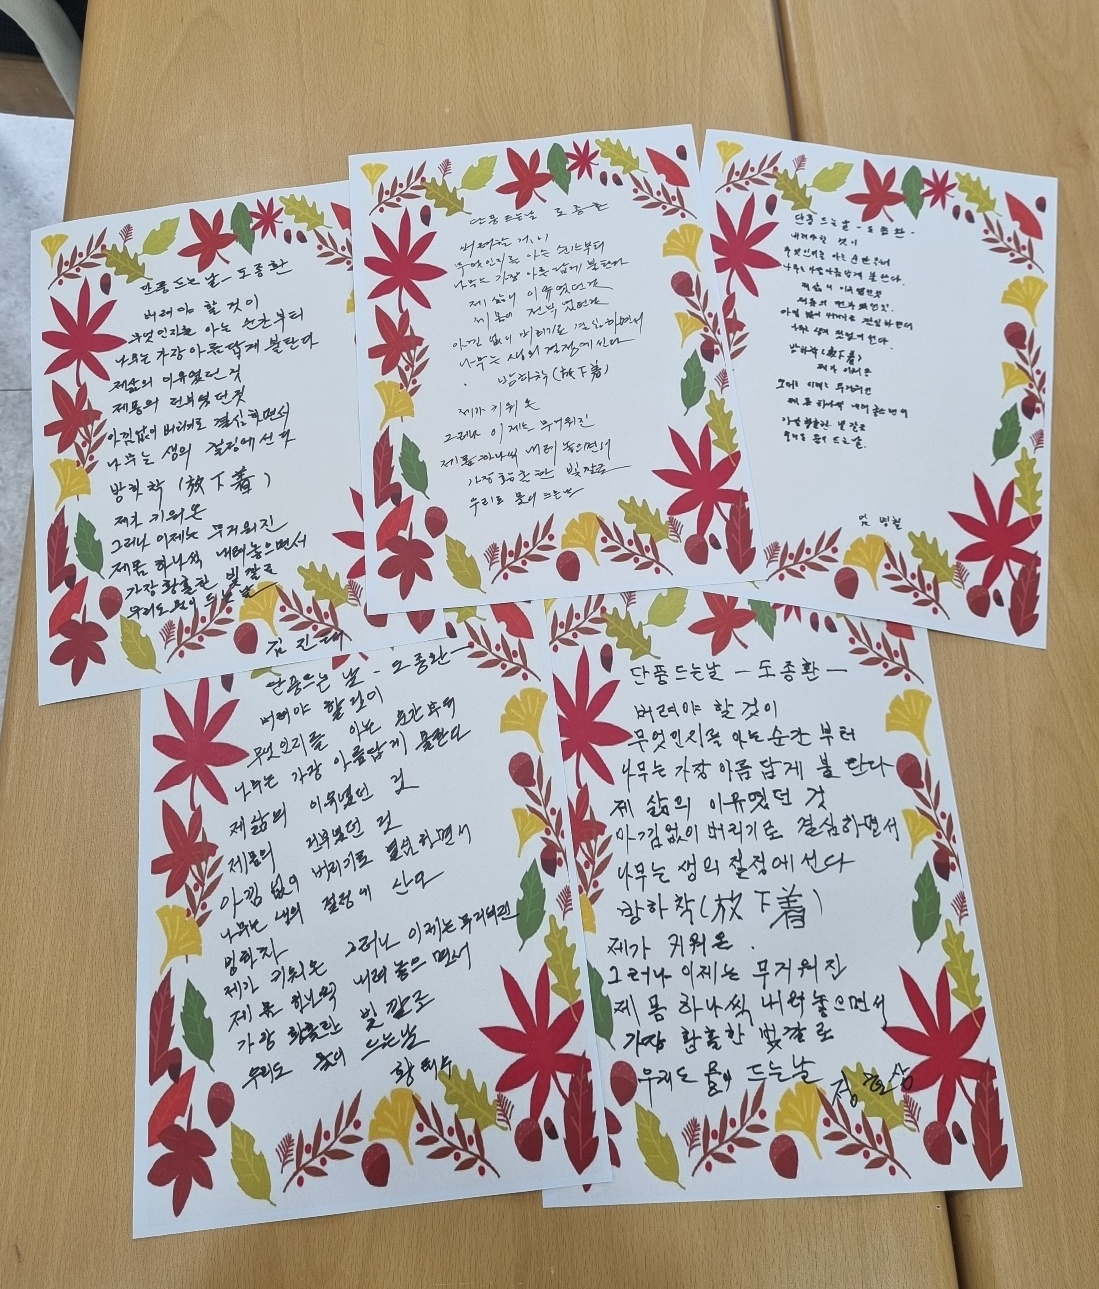 단풍드는날 - 도종환
버려야 할 것이
무엇인지를 아는 순간부터
나무는 가장 아름답게 불탄다
제삶의 이유였던 것
제몸의 전부였던것
아낌없이 버리기로 결심하면서
나무는 생의 절정에 선다
방하착 (放下着)
제가 키워온
그러나 이제는 무거워진
제몸 하나씩 내려놓으면서
가장 황홀한 빛깔로
우리도 물이 드는날
김진태
단풍드는날 도종환
버려야할 것이
무엇인지를 아는 순간부터
나무는 가장 아름답게 불탄다
제 삶의 이유였던가
제 몸의 전부였던가
아낌 없이 버리기로 결심하면서
나무는 생의 절정에 선다
방하착 (放下着)
제가 키워온
그러나 이제는 무거워진
제몸 하나씩 내려 놓으면서
가장 황홀한 빛깔로
우리도 물이 드는날
단풍 드는날 - 도종환 -
버려야할 것이
무엇인지를 아는 순간부터
나무는 가장 아름답게 불 탄다.
제 삶의 이유였던것
제몸의 전부였던것.
아낌 없이 버리기로 결심하면서
나무는 생의 절정에 선다.
방하착 (放下着)
제가 키워온
그러나 이제는 무거워진
제 몸 하나씩 내려 놓으면서
가장 황홀한 빛깔로
우리도 물이 드는날.
단풍드는 날 - 도종환 -
버려야 할것이
무엇인지를 아는 순간부터
나무는 가장 아름답게 불탄다
제삶의 이유였던 것
제몸의 전부였던 것
아낌 없이 버리기로 결심하면서
나무는 생의 절정에 선다
방하착
제가 키워온 그러나 이제는 무거워진
제 몸 하나씩 내려 놓으면서
가장 황홀한 빛깔로
우리도 물이 드는날
황
단풍드는날 - 도종환 -
버려야 할 것이
무엇인지를 아는순간 부터
나무는 가장 아름 답게 불 탄다
제 삶의 이유였던 것
아낌없이 버리기로 결심하면서
나무는 생의 절정에 선다
방하착 (放下着)
제가 키워온.
그러나 이제는 무거워진
제 몸 하나씩 내려놓으면서
가장 황홀한 빛깔로
우리도 물이 드는날